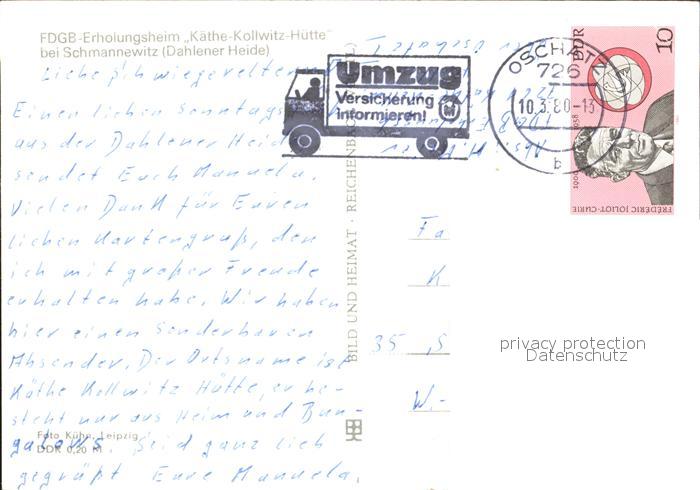 FDGB-Erholungsheim „Käthe-Kollwitz-Hütte"
bei Schmannewitz (Dahlener Heide)
Einen lieben Sonntags
aus der Dahlener Heide
sendet Euch Manuela.
Vielen Dank für Euren
lieben Kartengruß, den
ich mit großer Freude
erhalten habe. Wir haben
hier einen sonderbaren
Absender. Der Ortsname ist
Käthe Kollwitz Hütte, er be-
steht nur aus Heim und Bun-
galows. Seid ganz lieb
gegrüßt Eure Manuela.
Foto Kühn, Leipzig
DDR 0,20 M
BILD UND HEIMAT · REICHENBACH
Umzug
Versicherung
informieren!
OSCHATZ
726
10.3.80-13
b
DDR
10
1900 1958
FRÉDÉRIC JOLIOT-CURIE
Fa
K
35 S
W.-
privacy protection
Datenschutz